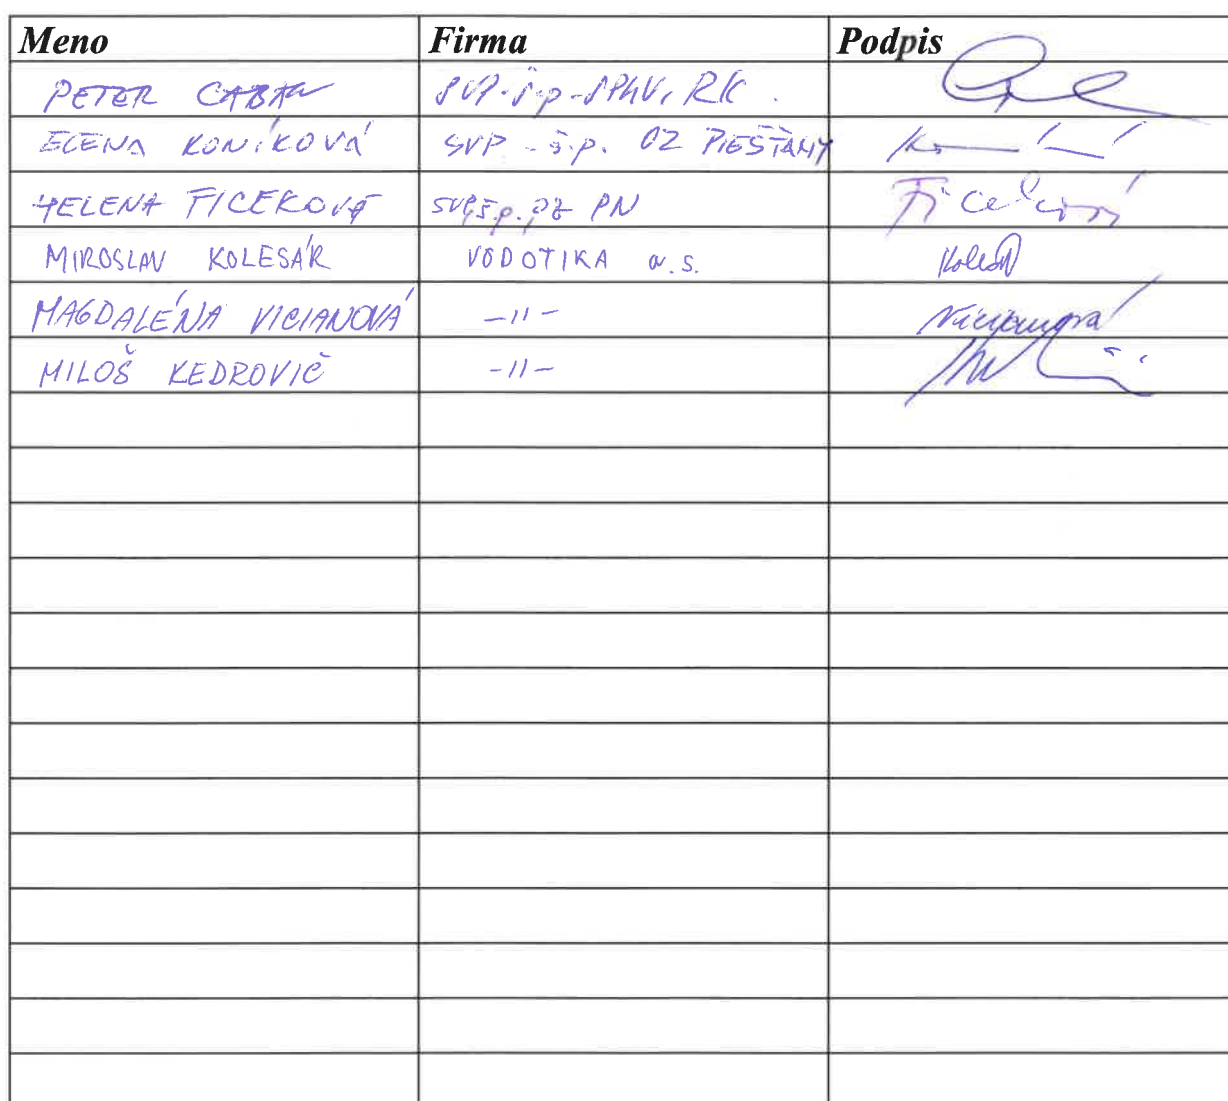 Meno Firma Podpis
PETER CABAN SVP-š.p-SPHV, RK.
ELENA KONÍKOVÁ SVP - š.p. OZ PIEŠŤANY
HELENA FICEKOVÁ SVP,š.p., OZ PN Ficeková
MIROSLAV KOLESÁR VODOTIKA a.s. Kolesár
MAGDALÉNA VICIANOVÁ -11- Vicianová
MILOŠ KEDROVIČ -11-